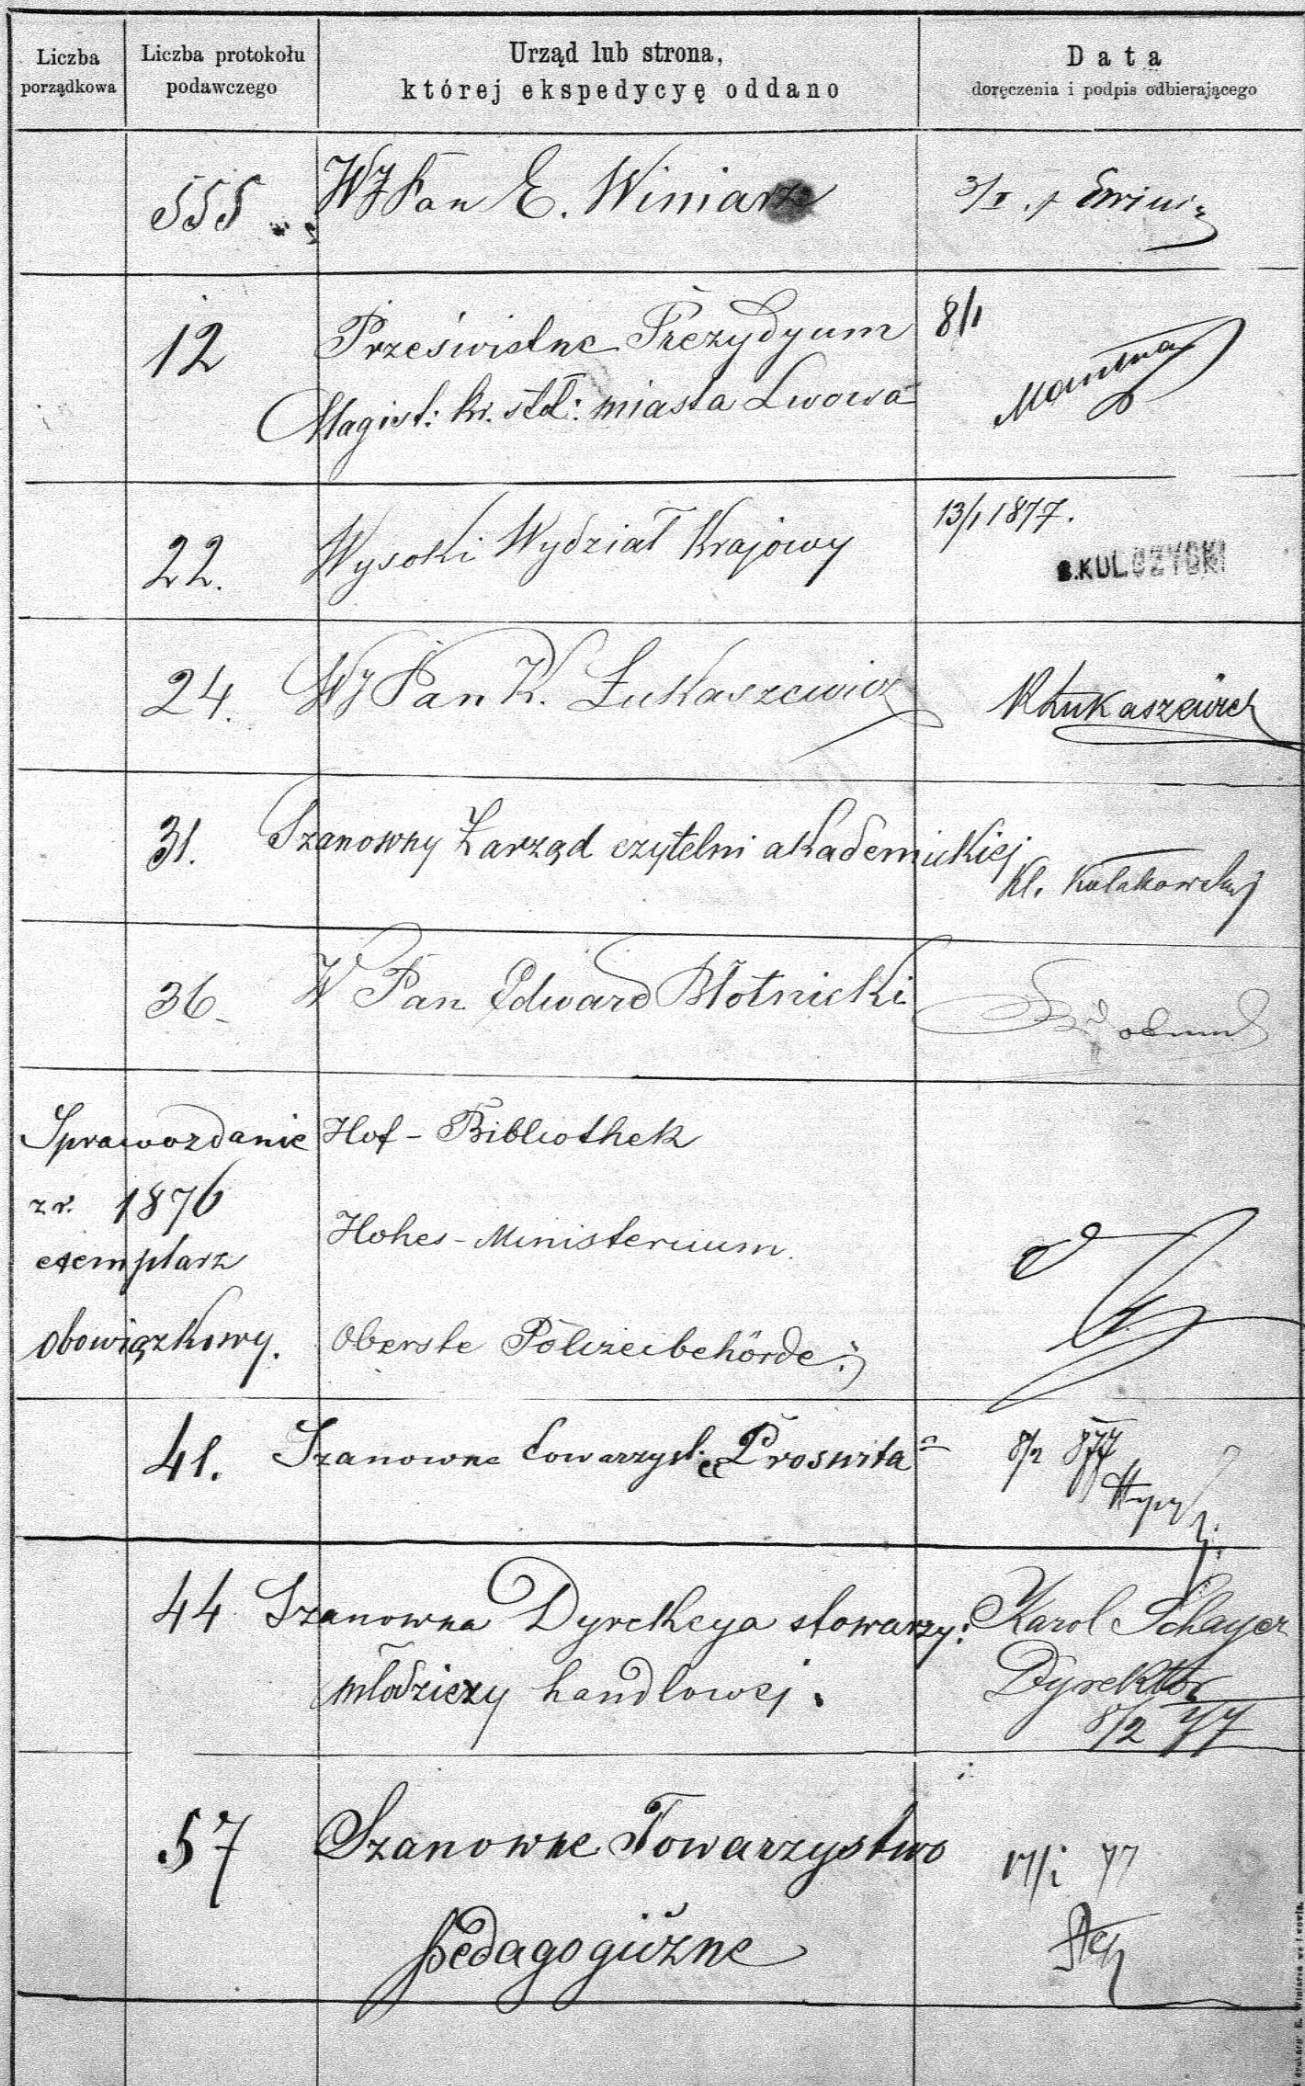 Liczba porządkowa
Liczba protokołu podawczego
Urząd lub strona, której ekspedycyę oddano
Data doręczenia i podpis odbierającego
555 WJPan E. Winiarz 3/I
12 Prześwietne Prezydyum 8/I
Magist: kr. stoł: miasta Lwowa
22. Wysoki Wydział Krajowy 13/I 1877.
S. KULCZYCKI
24. WJPan K. Łukaszewicz KŁukaszewicz
31. Szanowny Zarząd czytelni akademickiej
Kl. Kułakowski
36 W Pan Edward Błotnicki
Sprawozdanie Hof-Bibliothek
z r. 1876
Hohes-Ministerium
exemplarz
obowiązkowy. Oberste Polizeibehörde
41. Szanowne Towarzyst: „Proswita" 8/2 877
44 Szanowna Dyrekcya stowarzy: Karol Schayer
młodzieży handlowej. Dyrektor
8/2 77
57 Szanowne Towarzystwo
pedagogiczne 77